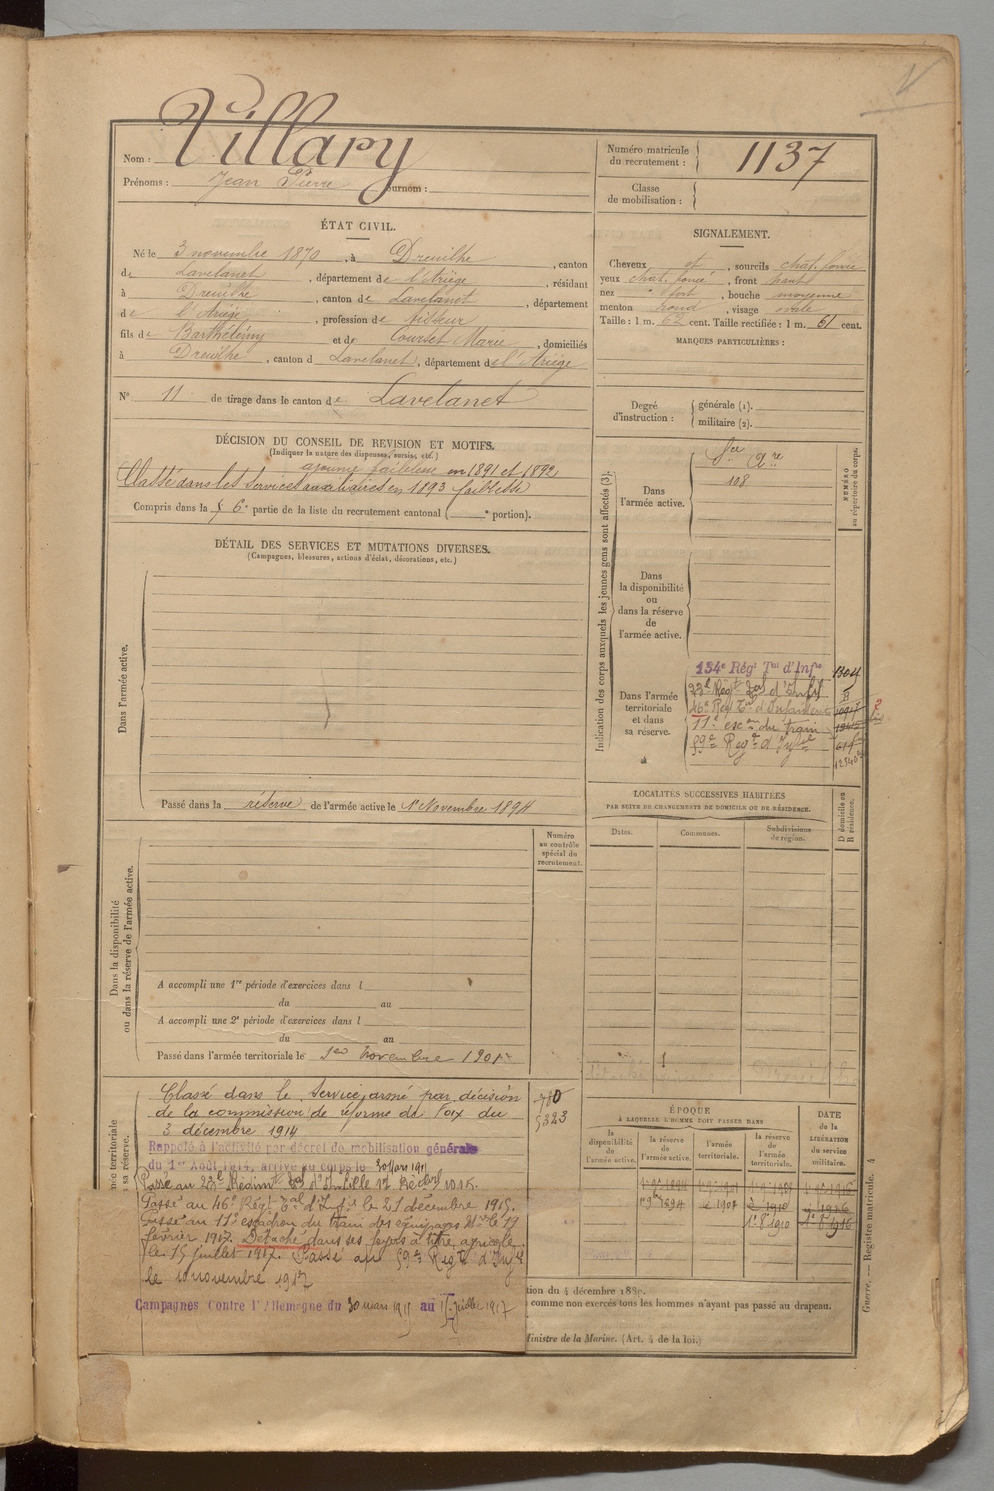 Nom : Villary
Prénoms : Jean Pierre surnom :
Numéro matricule du recrutement : 1137
Classe de mobilisation :
ÉTAT CIVIL.
Né le 3 novembre 1870, à Dreuilhe, canton
de Lavelanet, département de l'Ariège, résidant
à Dreuilhe, canton de Lavelanet, département
de l'Ariège, profession de tisseur
fils de Barthélemy et de Courset Marie, domiciliés
à Dreuilhe, canton de Lavelanet, département de l'Ariège
N° 11 de tirage dans le canton de Lavelanet
SIGNALEMENT.
Cheveux et, sourcils chat. foncé
yeux chat. foncé, front haut
nez fort, bouche moyenne
menton rond, visage ovale
Taille : 1 m. 62 cent. Taille rectifiée : 1 m. 61 cent.
MARQUES PARTICULIÈRES :
Degré d'instruction : générale (1).
militaire (2).
DÉCISION DU CONSEIL DE REVISION ET MOTIFS.
(Indiquer la nature des dispenses, sursis, etc.)
ajourné faiblesse en 1891 et 1892
Classé dans les services auxiliaires en 1893 faiblesse
Compris dans la 6e partie de la liste du recrutement cantonal ( e portion).
DÉTAIL DES SERVICES ET MUTATIONS DIVERSES.
(Campagnes, blessures, actions d'éclat, décorations, etc.)
Dans l'armée active.
Passé dans la réserve de l'armée active le 1er Novembre 1894
Indication des corps auxquels les jeunes gens sont affectés (3).
NUMÉRO au répertoire du corps.
Dans l'armée active.
108
Dans la disponibilité ou dans la réserve de l'armée active.
Dans l'armée territoriale et dans sa réserve.
134e Régt Tal d'Infie 1304
23e Régt Tal d'Inf
46e Régt Tal d'Infanterie
11e escon du train
59e Régt d'Inf
LOCALITÉS SUCCESSIVES HABITÉES
PAR SUITE DE CHANGEMENTS DE DOMICILE OU DE RÉSIDENCE.
Dates. Communes. Subdivisions de région.
D domicile ou R résidence.
Dans la disponibilité ou dans la réserve de l'armée active.
Numéro au contrôle spécial du recrutement.
A accompli une 1re période d'exercices dans l
du au
A accompli une 2e période d'exercices dans l
du au
Passé dans l'armée territoriale le 1er novembre 1901
Classé dans le Service armé par décision
de la commission de réforme de Foix du
3 décembre 1914
Rappelé à l'activité par décret de mobilisation générale
du 1er Août 1914, arrivé au corps le 30 Mars 1915
Passé au 23e Régiment Tal d'Infie le 17 1915.
Passé au 46e Régt Tal d'Infie le 21 décembre 1915.
Passé au 11e escadron du train des équipages Mres le 19
février 1917. Détaché dans ses foyers à titre agricole
le 15 juillet 1917. Passé au 59e Régt d'Infie
le 10 novembre 1917
Campagnes Contre l'Allemagne du 30 mars 1915 au 15 juillet 1917
5323
ÉPOQUE
À LAQUELLE L'HOMME DOIT PASSER DANS
la disponibilité de l'armée active. la réserve de l'armée active. l'armée territoriale. la réserve de l'armée territoriale.
DATE de la LIBÉRATION du service militaire.
tion du 4 décembre 1889.
comme non exercés tous les hommes n'ayant pas passé au drapeau.
Ministre de la Marine. (Art. 4 de la loi.)
Guerre. — Registre matricule. 4